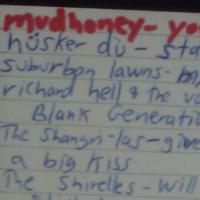 mudhoney- yo
hüsker dü - sta
suburban lawns-
richard hell & the vo
Blank Generati
The Shangri-las- give
a big kiss
The Shirelles - will